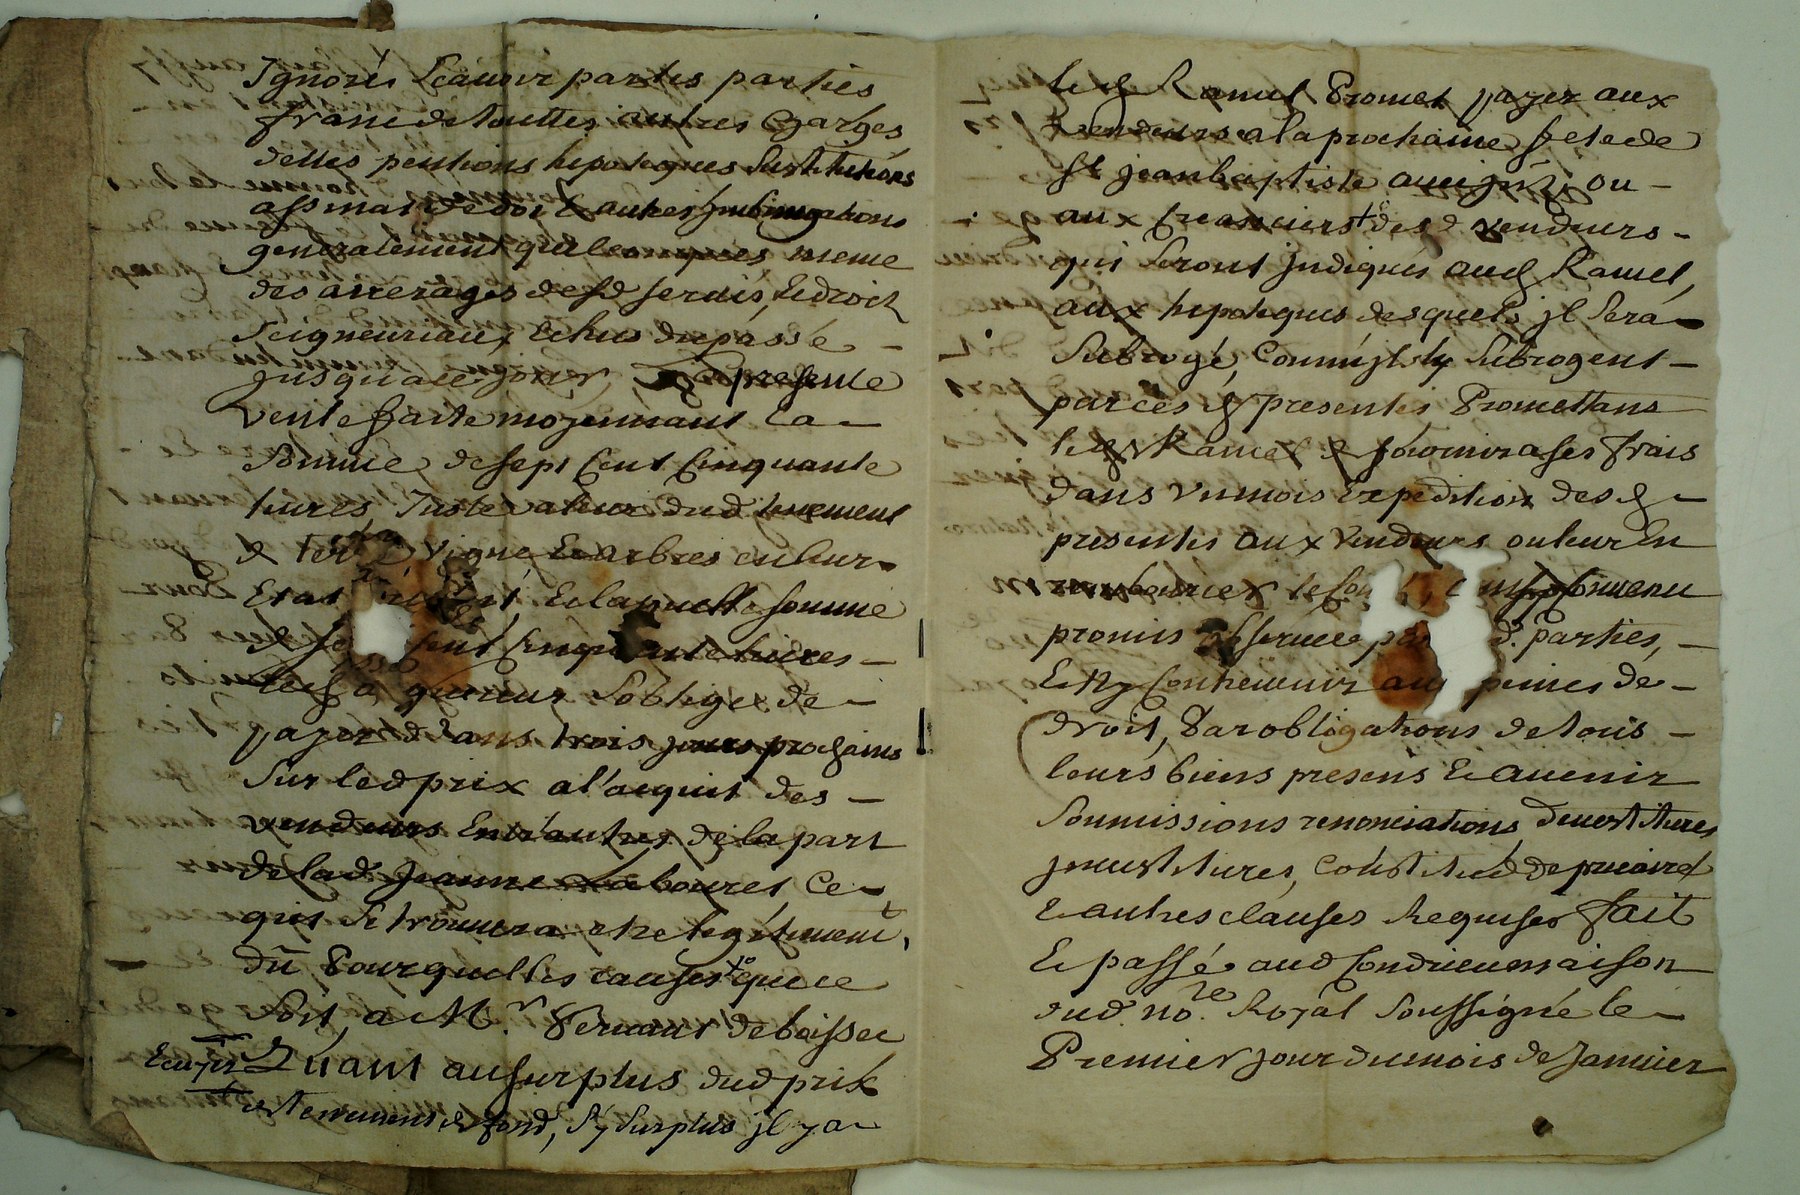 Ignorés Scauoir par les parties
franc de touttes autres Charges
dettes pentions hipoteques Sustitutions
generalement quelconques meme
des arrerages desd seruis, & droit
Seigneuriaux Echus du passé -
Jusqu'a ce jour, presente
vente faitte moyennant la -
Somme de sept Cent Cinquante
liures Juste valeur dud tenement
de terre, vigne & arbres en leur -
Etat & laquelle somme
de sept Cent Cinquante liures -
led aquereur S'oblige de -
payer dans trois jours prochains
Sur led prix a l'acquit des -
vendeurs Entr'autres de la part
de lad. Jeanne Laboures Ce -
qui Se trouuera etre legitimemt,
dû Pour quelles causes que ce
Soit, a Mr. de boissee
Ecuyer Quant au surplus dud prix
Sy Surplus jl y a
led Ramel Promet payer aux
vendeurs a la prochaine fete de
St jean baptiste ou -
aux Creanciers desd vendeurs -
qui Seront jndiqués aud Ramel,
aux hipoteques desquels jl Sera -
Subrogé, Comm'jls ly Subrogent -
par ces presentes Promettans
led Ramel fournir a ses frais
dans un mois Expedition desd -
presentes aux vendeurs ou leur En
rembourcer le
promis obseruer par d. parties, -
& ny Contreuenir aux peines de -
droit, Par obligations de tous -
leurs biens presens & auenir
Soumissions renonciations deuestitures
jnuestitures, Constitud de precaire
& autres clauses Requises fait
& passé aud Condrieu maison
dud. no.re Royal Soussigné le -
Premier jour du mois de Januier